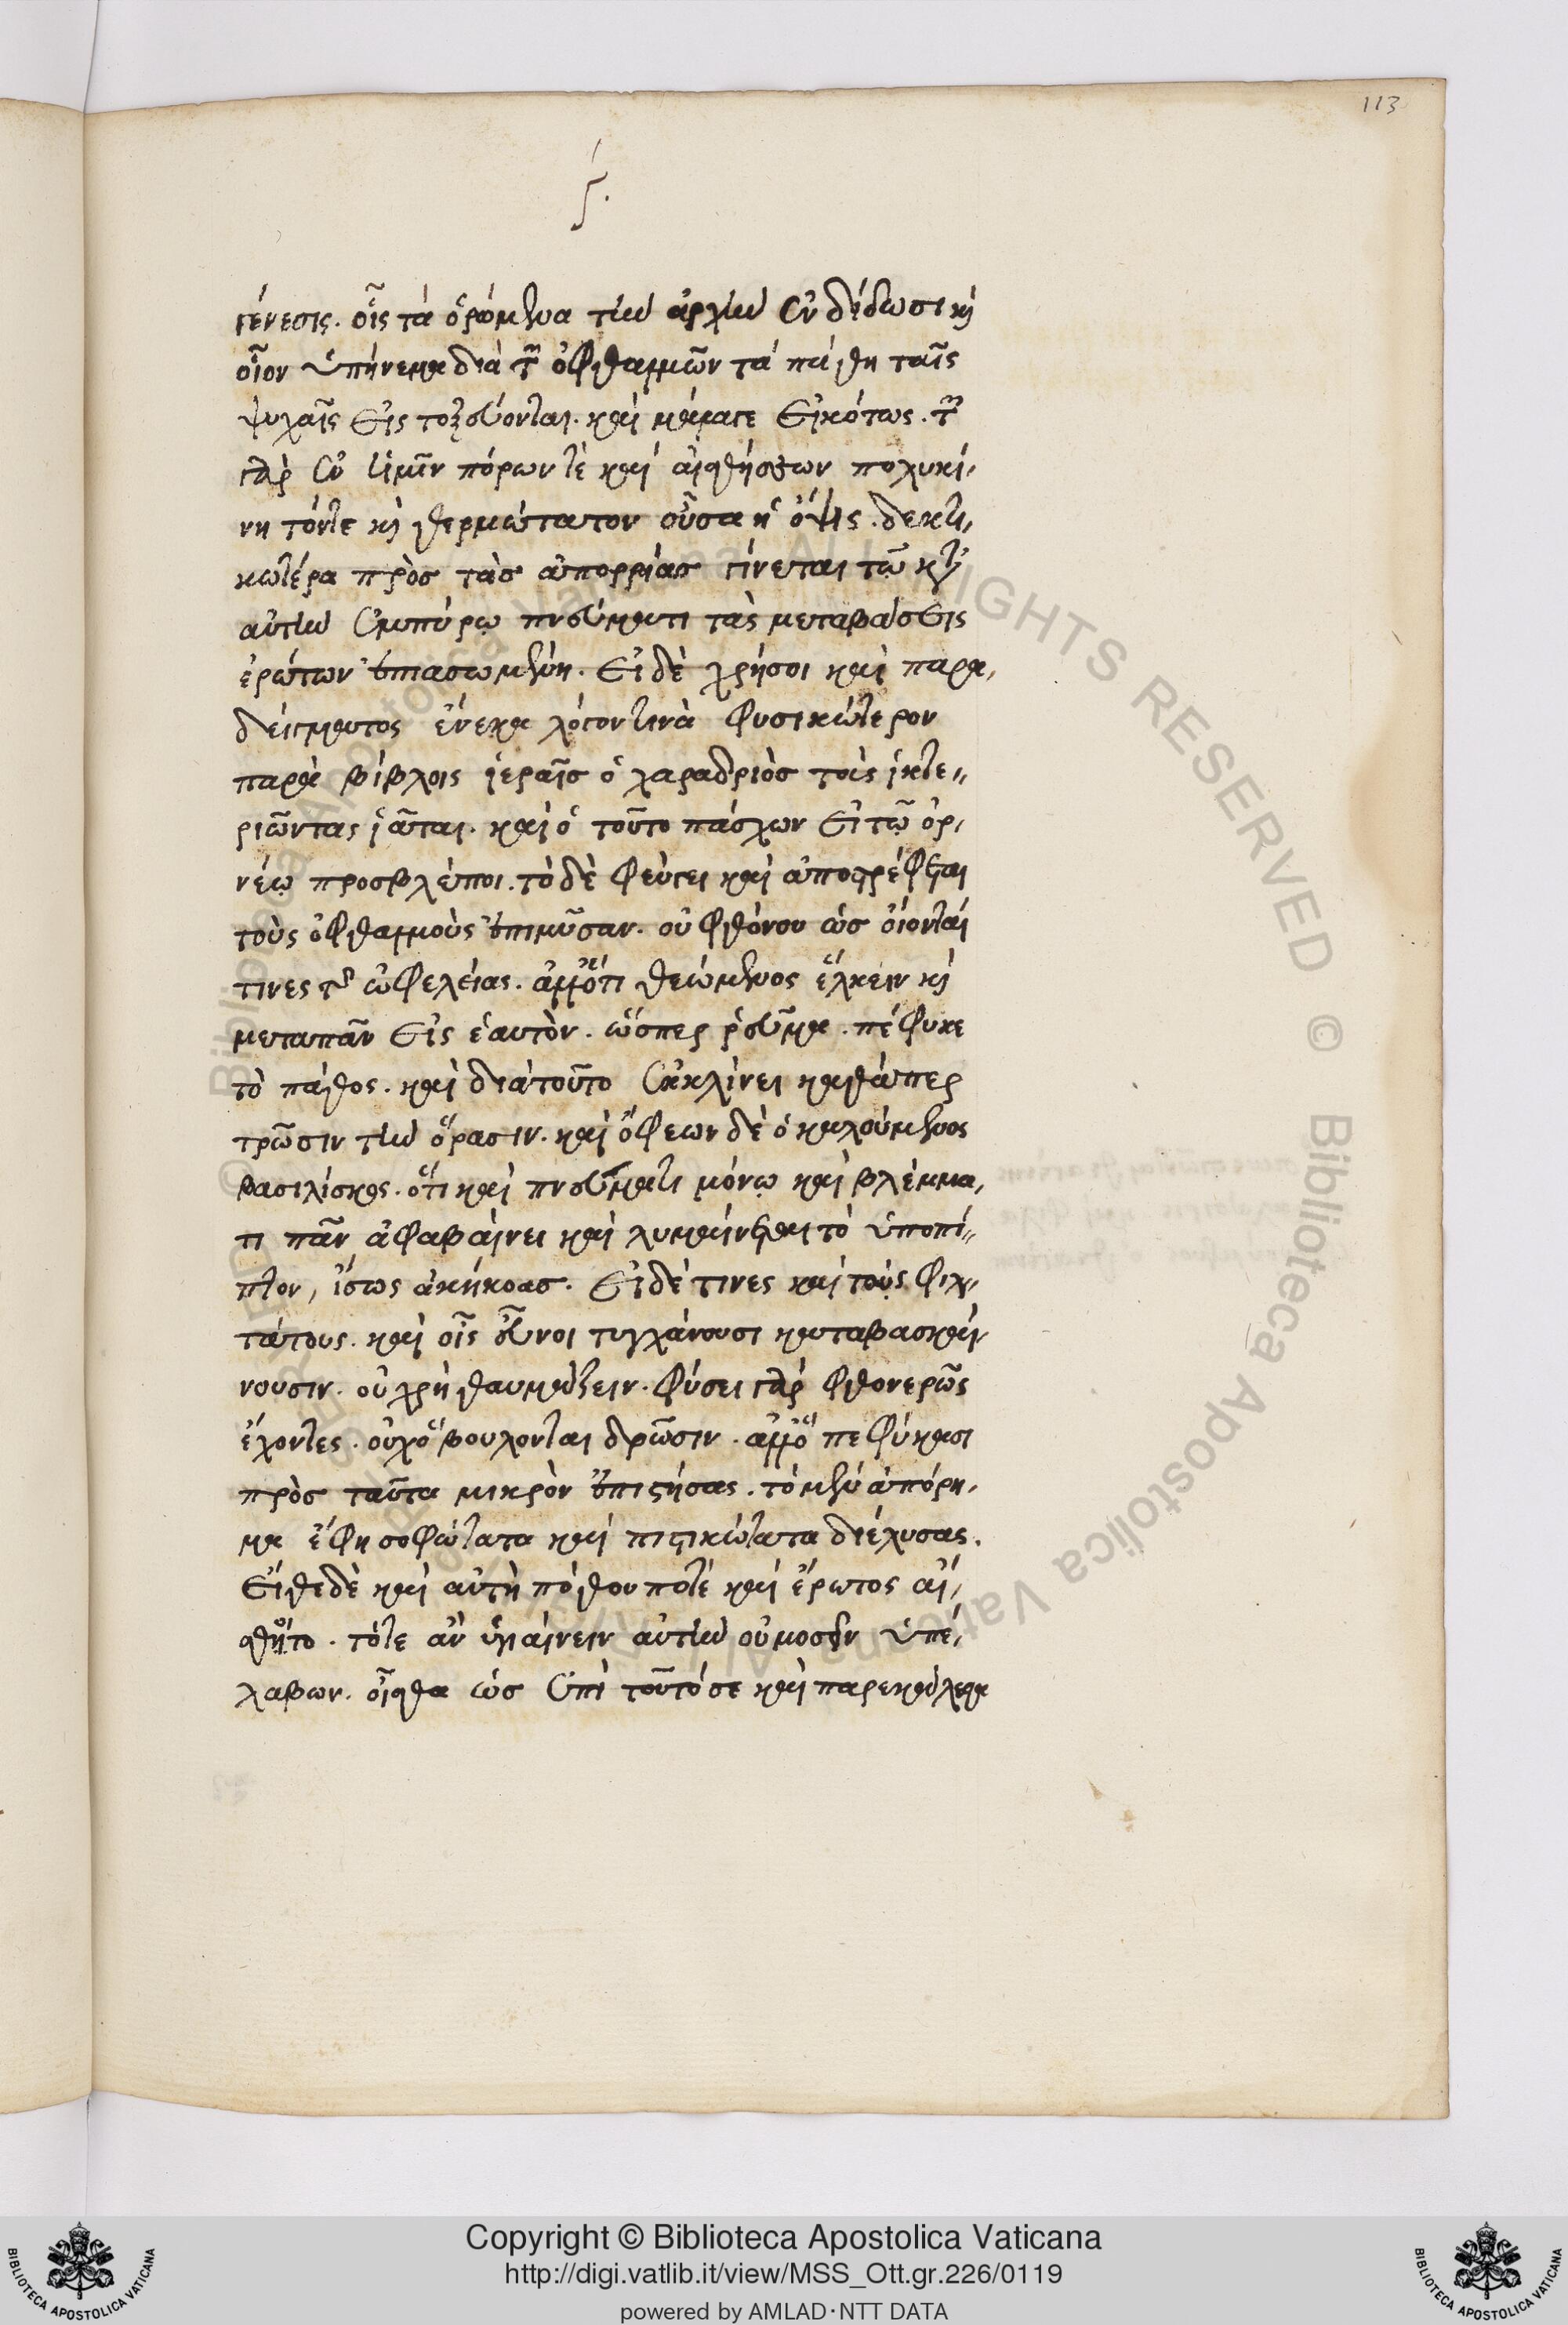 113
ϛ.
γένεσις. οἷς τὰ ὁρώμενα τὴν ἀρχὴν ἐνδίδωσι καὶ
οἷον ὑπήνεμα διὰ τῶν ὀφθαλμῶν τὰ πάθη ταῖς
ψυχαῖς εἰς τοξεύονται. καὶ μάλα γε εἰκότως. τῶν
γὰρ ἐν ἡμῖν πόρων τὲ καὶ αἰσθήσεων πολυκί,
νητόν τε καὶ θερμώτατον οὖσα ἡ ὄψις. δεκτι,
κωτέρα πρὸς τὰς ἀπορρίας γίνεται τῷ κατ
αὐτὴν ἐμπύρῳ πνεύματι τὰς μεταβάσεις
ἐρώτων ἐπισπωμένη. εἰ δὲ χρή σοι καὶ παρα,
δείγματος ἕνεκα λόγον τινὰ φυσικώτερον
παρὰ βίβλοις ἱεραῖς ὁ χαραδριὸς τοὺς ἰκτε,,
ριῶντας ἰᾶται. καὶ ὁ τοῦτο πάσχων εἰ τῷ ὀρ,
νέῳ προσβλέποι. τὸ δὲ φεύγει καὶ ἀποστρέφεται
τοὺς ὀφθαλμοὺς ἐπιμῦσαν. οὐ φθόνου ὡς οἴονταί
τινες τῆς ὠφελείας. ἀλλ' ὅτι θεώμενος ἕλκειν καὶ
μετασπᾶν εἰς ἑαυτὸν. ὥσπερ ῥεῦμα. πέφυκε
τὸ πάθος. καὶ διατοῦτο ἐκκλίνει καθάπερ
τρῶσιν τὴν ὅρασιν. καὶ ὄφεων δὲ ὁ καλούμενος
βασιλίσκος. ὅτι καὶ πνεύματι μόνῳ καὶ βλέμμα,
τι πᾶν ἀφαβαίνει καὶ λυμαίνεται τὸ ὑποπί,,
πτον, ἴσως ἀκήκοας. εἰ δέ τινες καὶ τοὺς φιλ,
τάτους. καὶ οἷς εὖνοι τυγχάνουσι καταβασκαί,
νουσιν. οὐ χρὴ θαυμάζειν. φύσει γὰρ φθονερῶς
ἔχοντες. οὐχ ὃ βούλονται δρῶσιν. ἀλλ' ὃ πεφύκασι
πρὸς ταῦτα μικρὸν ἐπιστήσας. τὸ μὲν ἀπόρη,
μα ἔφη σοφώτατα καὶ πιστικώτατα διέλυσας.
εἴθε δὲ καὶ αὐτὴ πόθου ποτὲ καὶ ἔρωτος αἴ,
σθοιτο. τότε ἂν ὑγιαίνειν αὐτὴν οὐ νοσεῖν ὑπέ,
λαβων. οἶσθα ὡς ἐπὶ τοῦτό σε καὶ παρεκάλεσα
Copyright © Biblioteca Apostolica Vaticana
http://digi.vatlib.it/view/MSS_Ott.gr.226/0119
powered by AMLAD·NTT DATA